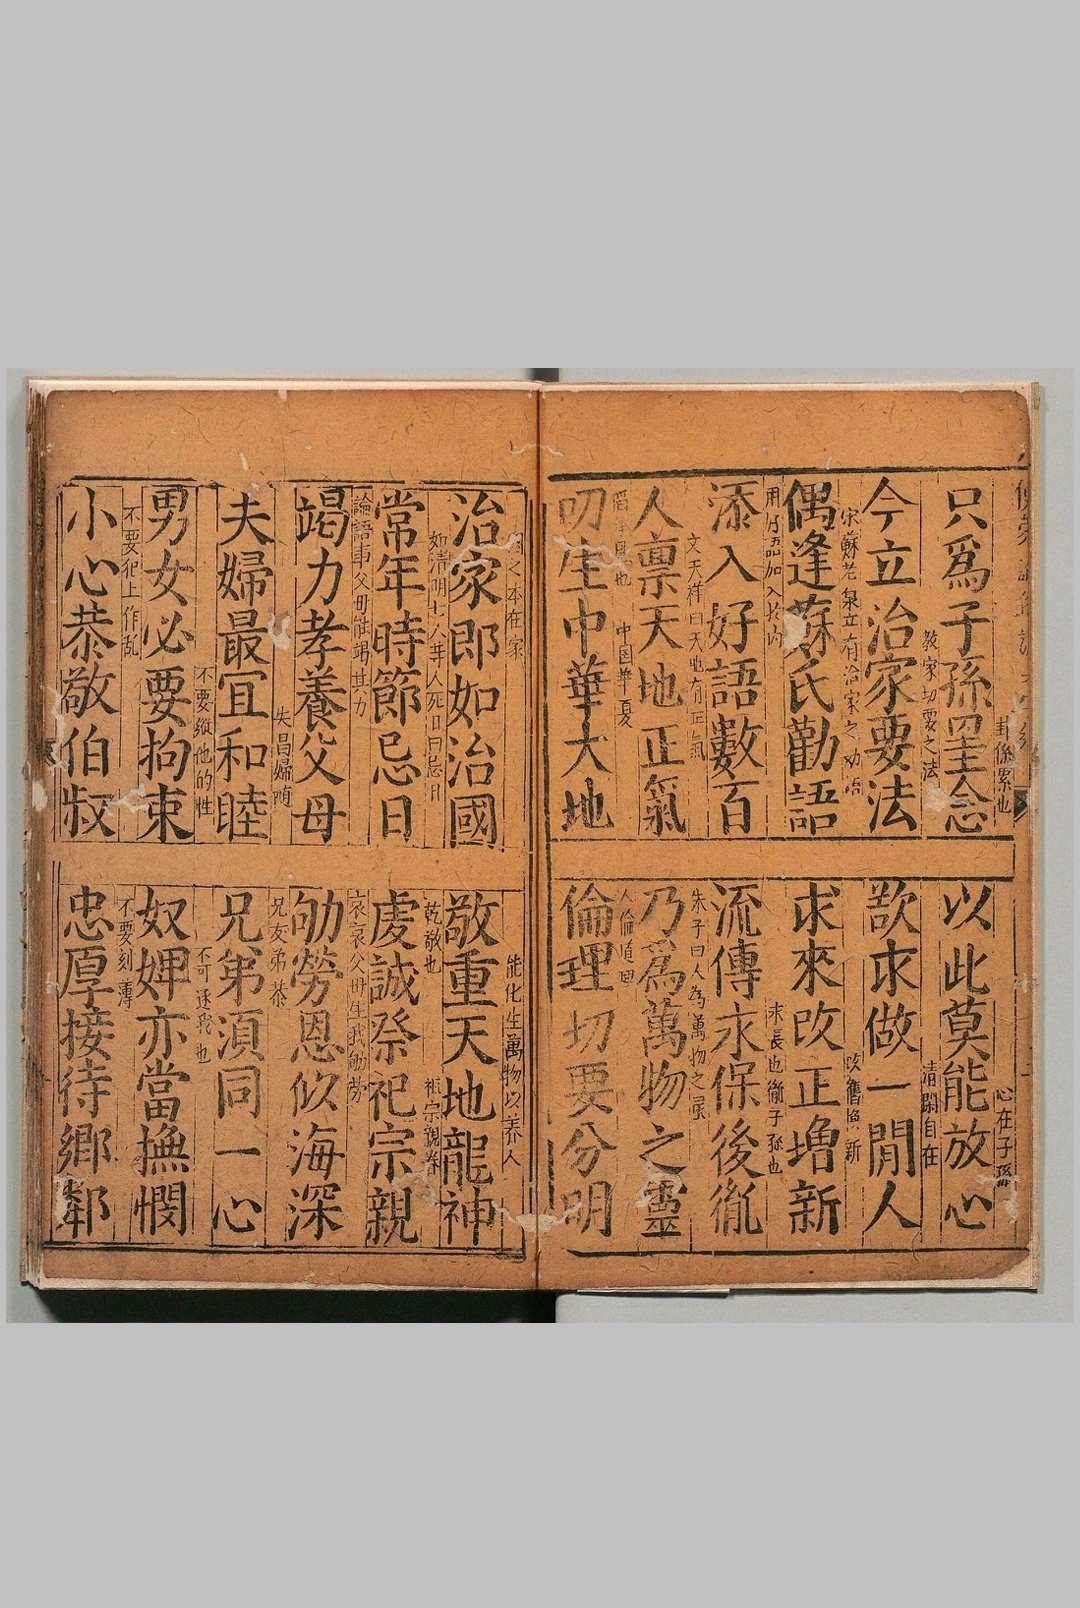 卦係累也
只爲子孫罣念
心在子孫
以此莫能放心
教家切要之法
今立治家要法
清閑自在
欲求做一閒人
宋蘇老泉立有治家之劝語
偶逢蘇氏勸語
改舊換新
求來改正增新
用好語加入於内
添入好語數百
永長也㣧子孫也
流傳永保後㣧
文天祥曰天地有正氣
人禀天地正氣
朱子曰人為萬物之灵
乃爲萬物之靈
中国華夏
叨生中華大地
人倫道理
倫理切要分明
国之本在家
治家即如治國
能化生萬物以养人
敬重天地龍神
如清明七人等人死日曰忌日
常年時節忌日
乾敬也
祖宗親眷
虔誠祭祀宗親
論語事父母能竭其力
竭力孝養父母
哀哀父母生我劬劳
劬勞恩似海深
夫昌婦随
夫婦最宜和睦
兄友弟恭
兄弟須同一心
不要縱他的性
男女必要拘束
不可逐我也
奴婢亦當撫憫
不要犯上作乱
小心恭敬伯叔
不要刻薄
忠厚接待鄉鄰